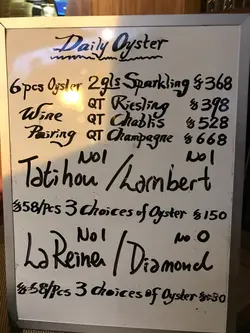 Daily Oyster
6 pcs Oyster 2gls Sparkling $368
Wine QT Riesling $398
Pairing QT Chablis $528
QT Champagne $668
No1 No1
Tatihou / Lambert
$58/Pcs 3 choices of Oyster $150
No1 No 0
La Reine / Diamond
$58/Pcs 3 choices of Oyster